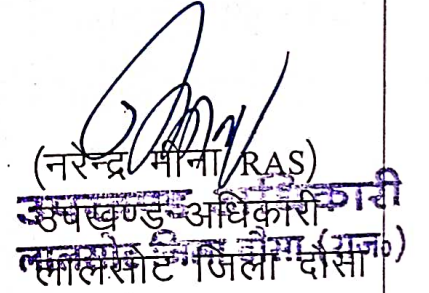 (नरेन्द्र मीना RAS)
उपखण्ड अधिकारी
लालसोट जिला दौसा (राज०)